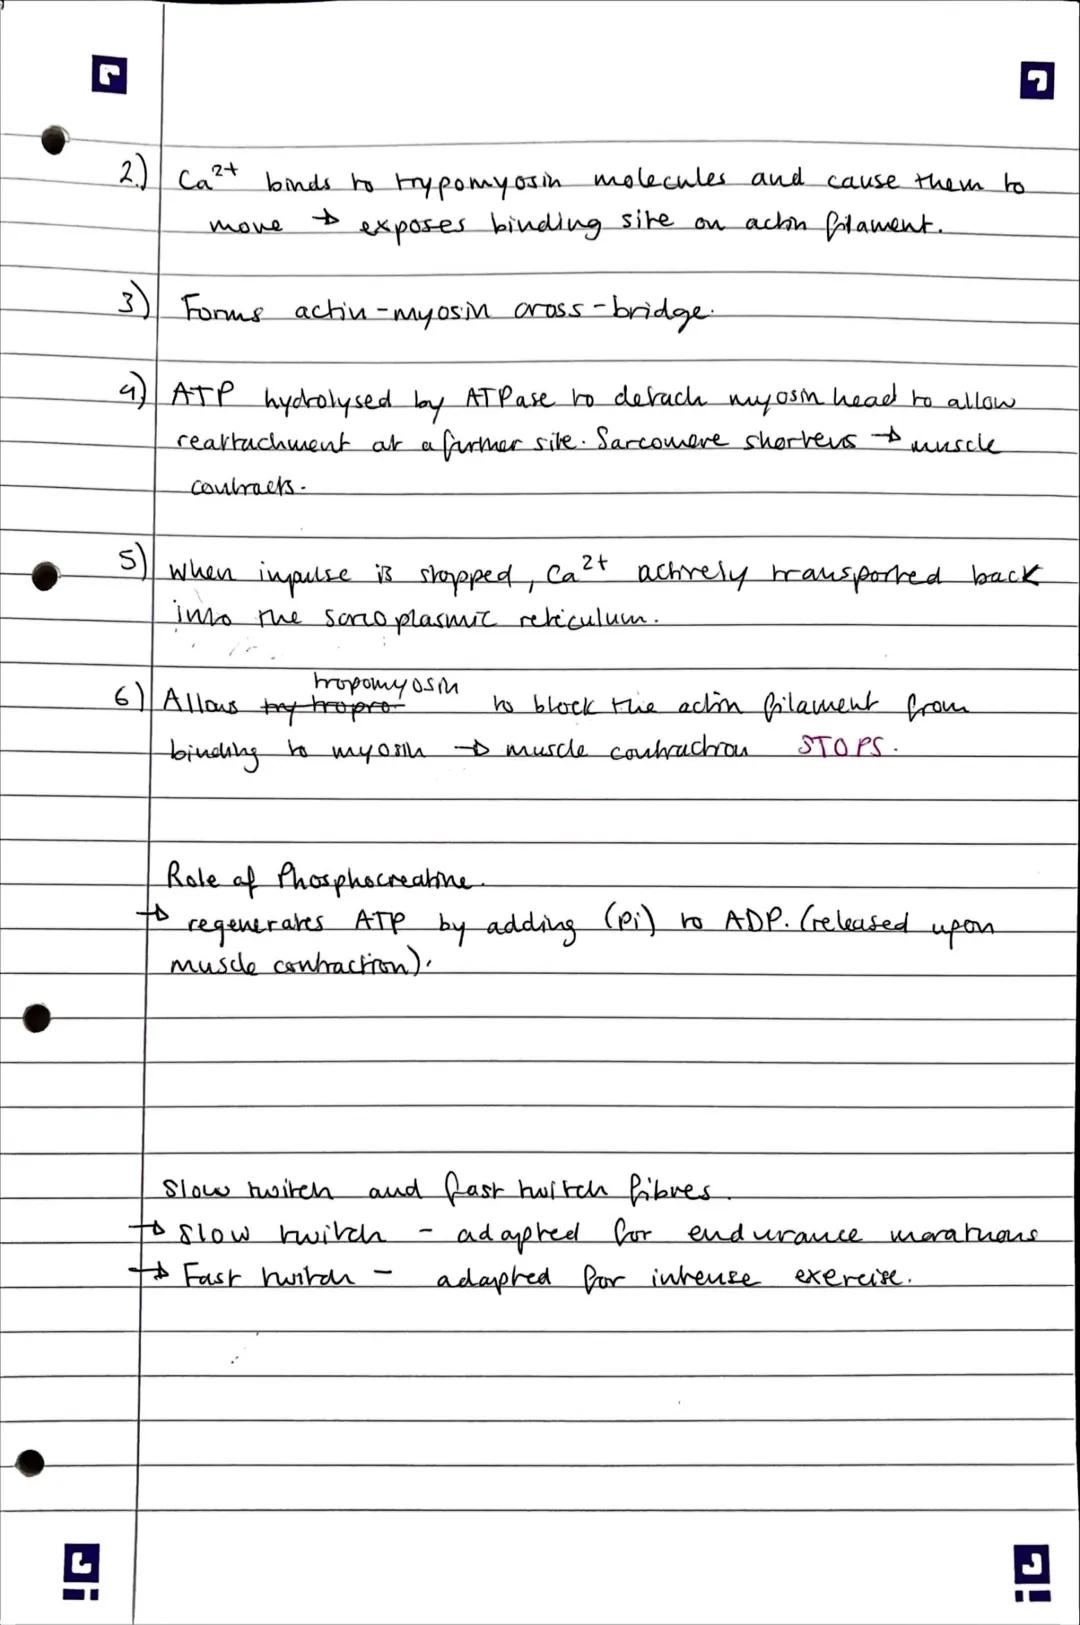 2.) Ca²⁺ binds to trypomyosin molecules and cause them to
move → exposes binding site on actin filament.
3) Forms actin-myosin cross-bridge.
4) ATP hydrolysed by ATPase to detach myosin head to allow
reattachment at a further site. Sarcomere shortens → muscle
contracts.
5) When impulse is stopped, Ca²⁺ actively transported back
into the sarcoplasmic reticulum.
tropomyosin
6) Allows try tropro to block the actin filament from
binding to myosin → muscle contraction STOPS.
Role of Phosphocreatine.
→ regenerates ATP by adding (Pi) to ADP. (released upon
muscle contraction).
Slow twitch and fast twitch fibres.
→ Slow twitch - adapted for endurance marathons
→ Fast twitch - adapted for intense exercise.